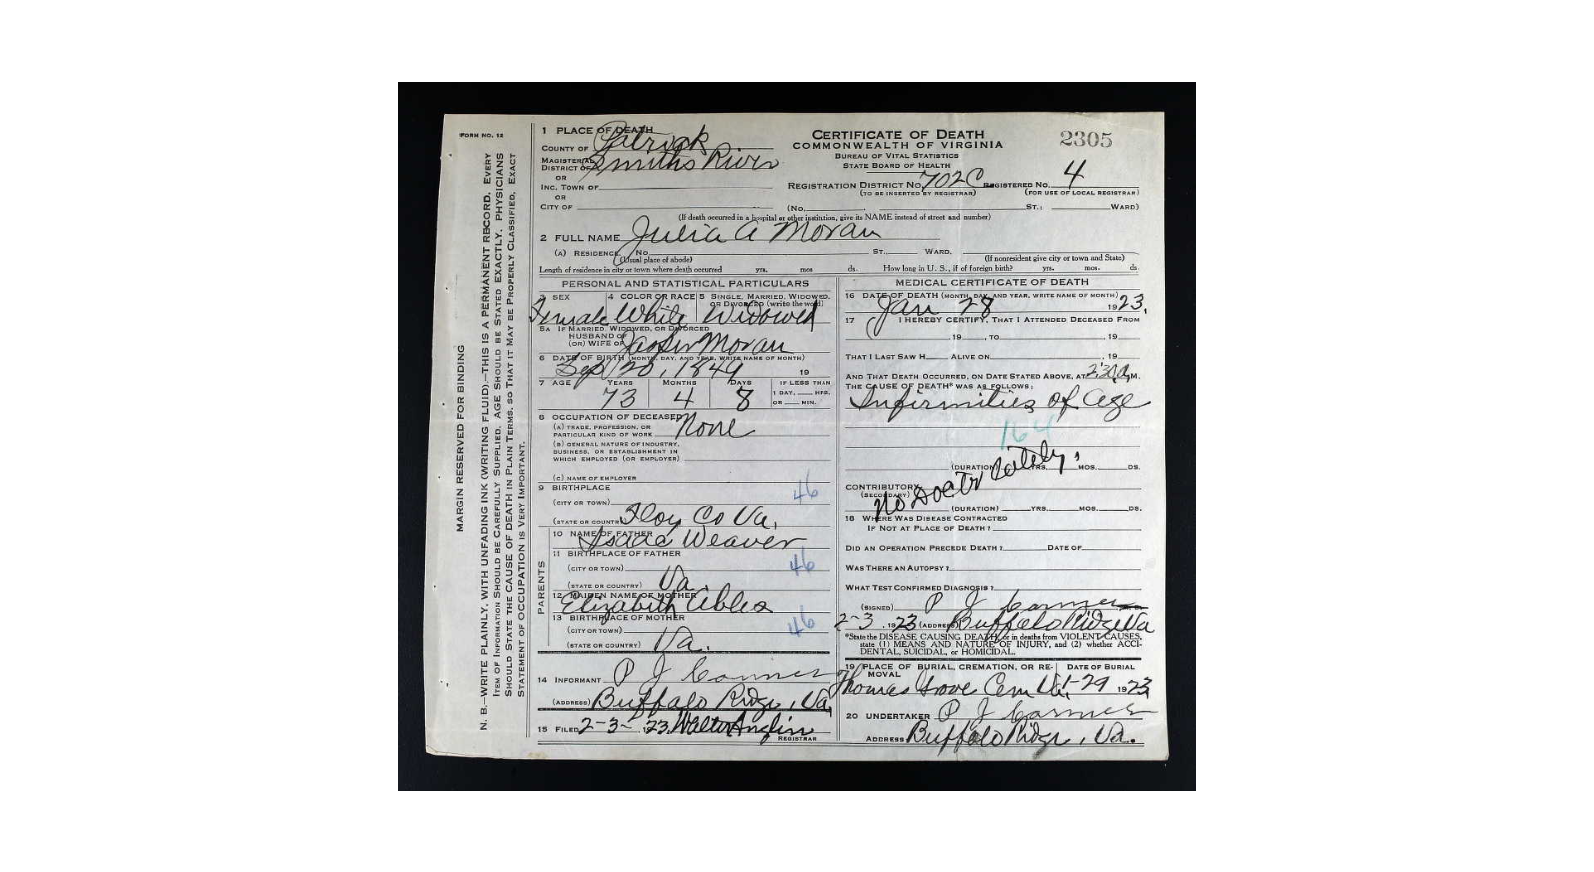 FORM NO. 12
MARGIN RESERVED FOR BINDING
N. B.—WRITE PLAINLY, WITH UNFADING INK (WRITING FLUID).—THIS IS A PERMANENT RECORD. EVERY
ITEM OF INFORMATION SHOULD BE CAREFULLY SUPPLIED. AGE SHOULD BE STATED EXACTLY. PHYSICIANS
SHOULD STATE THE CAUSE OF DEATH IN PLAIN TERMS, SO THAT IT MAY BE PROPERLY CLASSIFIED. EXACT
STATEMENT OF OCCUPATION IS VERY IMPORTANT.
1 PLACE OF DEATH
COUNTY OF Patrick
MAGISTERIAL DISTRICT OF Smiths River
OR
INC. TOWN OF
OR
CITY OF
CERTIFICATE OF DEATH
COMMONWEALTH OF VIRGINIA
BUREAU OF VITAL STATISTICS
STATE BOARD OF HEALTH
2305
REGISTRATION DISTRICT NO. 702C REGISTERED NO. 4
(TO BE INSERTED BY REGISTRAR) (FOR USE OF LOCAL REGISTRAR)
(No. ST.; WARD)
(If death occurred in a hospital or other institution, give its NAME instead of street and number)
2 FULL NAME Julia A Moran
(A) RESIDENCE. No. ST. WARD.
(Usual place of abode) (If nonresident give city or town and State)
Length of residence in city or town where death occurred yrs. mos. ds. How long in U. S., if of foreign birth? yrs. mos. ds.
PERSONAL AND STATISTICAL PARTICULARS
3 SEX 4 COLOR OR RACE 5 SINGLE, MARRIED, WIDOWED, OR DIVORCED (write the word)
Female White Widowed
5A IF MARRIED, WIDOWED, OR DIVORCED
HUSBAND OF
(OR) WIFE OF Jasper Moran
6 DATE OF BIRTH (MONTH, DAY, AND YEAR, WRITE NAME OF MONTH)
Sep 20, 1849 19
7 AGE YEARS MONTHS DAYS IF LESS THAN
1 DAY, HRS.
OR MIN.
73 4 8
8 OCCUPATION OF DECEASED
(A) TRADE, PROFESSION, OR
PARTICULAR KIND OF WORK None
(B) GENERAL NATURE OF INDUSTRY,
BUSINESS, OR ESTABLISHMENT IN
WHICH EMPLOYED (OR EMPLOYER)
(C) NAME OF EMPLOYER
9 BIRTHPLACE 46
(CITY OR TOWN)
(STATE OR COUNTRY) Floy Co Va.
PARENTS
10 NAME OF FATHER Isaac Weaver
11 BIRTHPLACE OF FATHER
(CITY OR TOWN) 46
(STATE OR COUNTRY) Va
12 MAIDEN NAME OF MOTHER
Elizabeth
13 BIRTHPLACE OF MOTHER
(CITY OR TOWN) 46
(STATE OR COUNTRY) Va.
14 INFORMANT P J
(ADDRESS) Buffalo Ridge, Va
15 FILED 2-3- 23, Walter Anglin
REGISTRAR
MEDICAL CERTIFICATE OF DEATH
16 DATE OF DEATH (MONTH, DAY, AND YEAR, WRITE NAME OF MONTH)
Jan 28 1923,
17 I HEREBY CERTIFY, THAT I ATTENDED DECEASED FROM
, 19 , TO , 19
THAT I LAST SAW H ALIVE ON , 19
AND THAT DEATH OCCURRED, ON DATE STATED ABOVE, AT M.
THE CAUSE OF DEATH* WAS AS FOLLOWS:
Infirmities of age
164
(DURATION) YRS. MOS. DS.
CONTRIBUTORY
(SECONDARY)
No Doctor lately,
(DURATION) YRS. MOS. DS.
18 WHERE WAS DISEASE CONTRACTED
IF NOT AT PLACE OF DEATH?
DID AN OPERATION PRECEDE DEATH? DATE OF
WAS THERE AN AUTOPSY?
WHAT TEST CONFIRMED DIAGNOSIS?
(SIGNED) P J
2-3, 1923 (ADDRESS) Buffalo Ridge Va
*State the DISEASE CAUSING DEATH, or in deaths from VIOLENT CAUSES,
state (1) MEANS AND NATURE OF INJURY, and (2) whether ACCI-
DENTAL, SUICIDAL, or HOMICIDAL.
19 PLACE OF BURIAL, CREMATION, OR RE-
MOVAL DATE OF BURIAL
Thomas Grove Cem Va 1-29 1923
20 UNDERTAKER P J
ADDRESS Buffalo Ridge, Va.